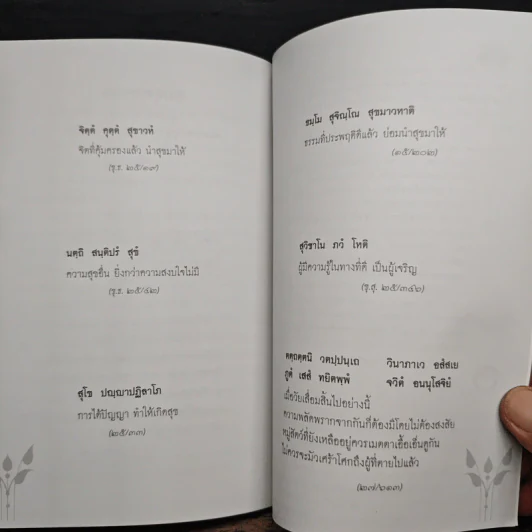 จิตฺตํ คุตฺตํ สุขาวหํ
จิตที่คุ้มครองแล้ว นำสุขมาให้
(ขุ.ธ. ๒๕/๑๙)
นตฺถิ สนฺติปรํ สุขํ
ความสุขอื่น ยิ่งกว่าความสงบใจไม่มี
(ขุ.ธ. ๒๕/๔๒)
สุโข ปญฺญาปฏิลาโภ
การได้ปัญญา ทำให้เกิดสุข
(๒๕/๓๓)
ธมฺโม สุจิณฺโณ สุขมาวหาติ
ธรรมที่ประพฤติดีแล้ว ย่อมนำสุขมาให้
(๑๕/๒๐๒)
สุวิชาโน ภวํ โหติ
ผู้มีความรู้ในทางที่ดี เป็นผู้เจริญ
(ขุ.สุ. ๒๕/๓๔๖)
ตตฺถตฺตนิ วตปฺปนฺเถ วินาภาเว อสํสเย
ภูตํ เสสํ ทยิตพฺพํ จวิตํ อนนุโสจิยํ
เมื่อวัยเสื่อมสิ้นไปอย่างนี้
ความพลัดพรากจากกันก็ต้องมีโดยไม่ต้องสงสัย
หมู่สัตว์ที่ยังเหลืออยู่ควรเมตตาเอื้อเอ็นดูกัน
ไม่ควรจะมัวเศร้าโศกถึงผู้ที่ตายไปแล้ว